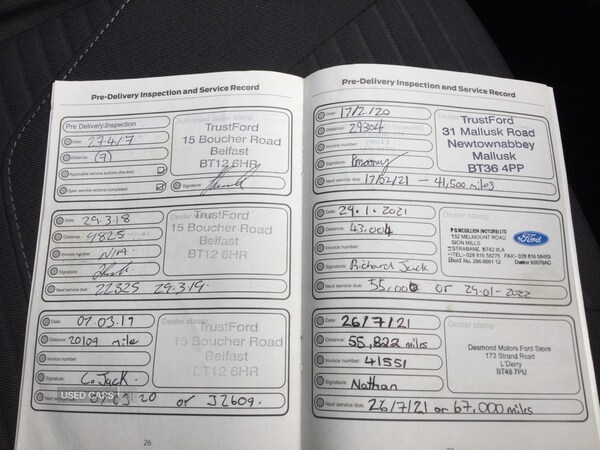 Pre-Delivery Inspection and Service Record
Pre Delivery Inspection
Date: 27.4/7
Distance: (9)
Applicable service actions checked
Open service actions completed
Signature:
TrustFord
15 Boucher Road
Belfast
BT12 6HR
Date: 29.3.18
Distance: 9825
Invoice number: N/A
Signature:
Next service due: 22325 29.3.19.
Dealer stamp
TrustFord
15 Boucher Road
Belfast
BT12 6HR
Date: 07.03.19
Distance: 20109 mile
Invoice number:
Signature: C. Jack.
Next service due: 07.03.20 or 32609.
Dealer stamp
TrustFord
15 Boucher Road
Belfast
BT12 6HR
USED CARS
26
Pre-Delivery Inspection and Service Record
Date: 17/2/20
Distance: 29304
Invoice number:
Signature: Pmooney
Next service due: 17/02/21 - 41,500 miles
TrustFord
31 Mallusk Road
Newtownabbey
Mallusk
BT36 4PP
Date: 29.1.2021
Distance: 43,004
Invoice number:
Signature: Richard Jack
Next service due: 55,000 or 29-01-2022
Dealer stamp
P G MCGILLION (MOTORS) LTD
132 MELMOUNT ROAD
SION MILLS
STRABANE BT82 9LA
Ford
Date: 26/7/21
Distance: 55,822 miles
Invoice number: 41551
Signature: Nathan
Next service due: 26/7/21 or 67,000 miles
Dealer stamp
Desmond Motors Ford Store
173 Strand Road
L'Derry
BT48 7PU